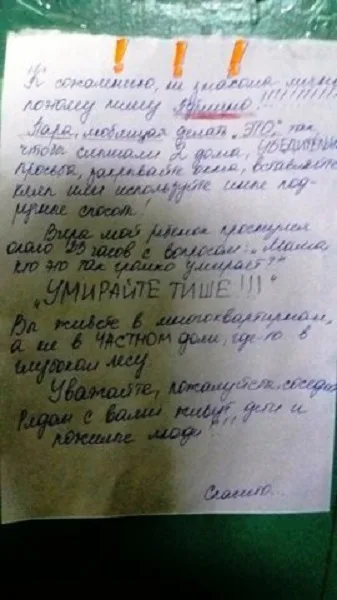 ! ! !
К сожалению, не знакома лично
поэтому пишу публично!!!!!!!!!
Пара, любящая делать „ЭТО“ так,
чтобы слышали 2 дома, УБЕДИТЕЛЬНАЯ
просьба, закрывайте окна, вставляйте
кляп или используйте иные под-
ручные способы!
Вчера мой ребёнок проснулся
около 23 часов с вопросом: „Мама
кто это так громко умирает?“
„УМИРАЙТЕ ТИШЕ!!!“
Вы живёте в многоквартирном,
а не в ЧАСТНОМ доме, где-то в
глубоком лесу.
Уважайте, пожалуйста, соседей
Рядом с вами живут дети и
пожилые люди!!!
Спасибо...